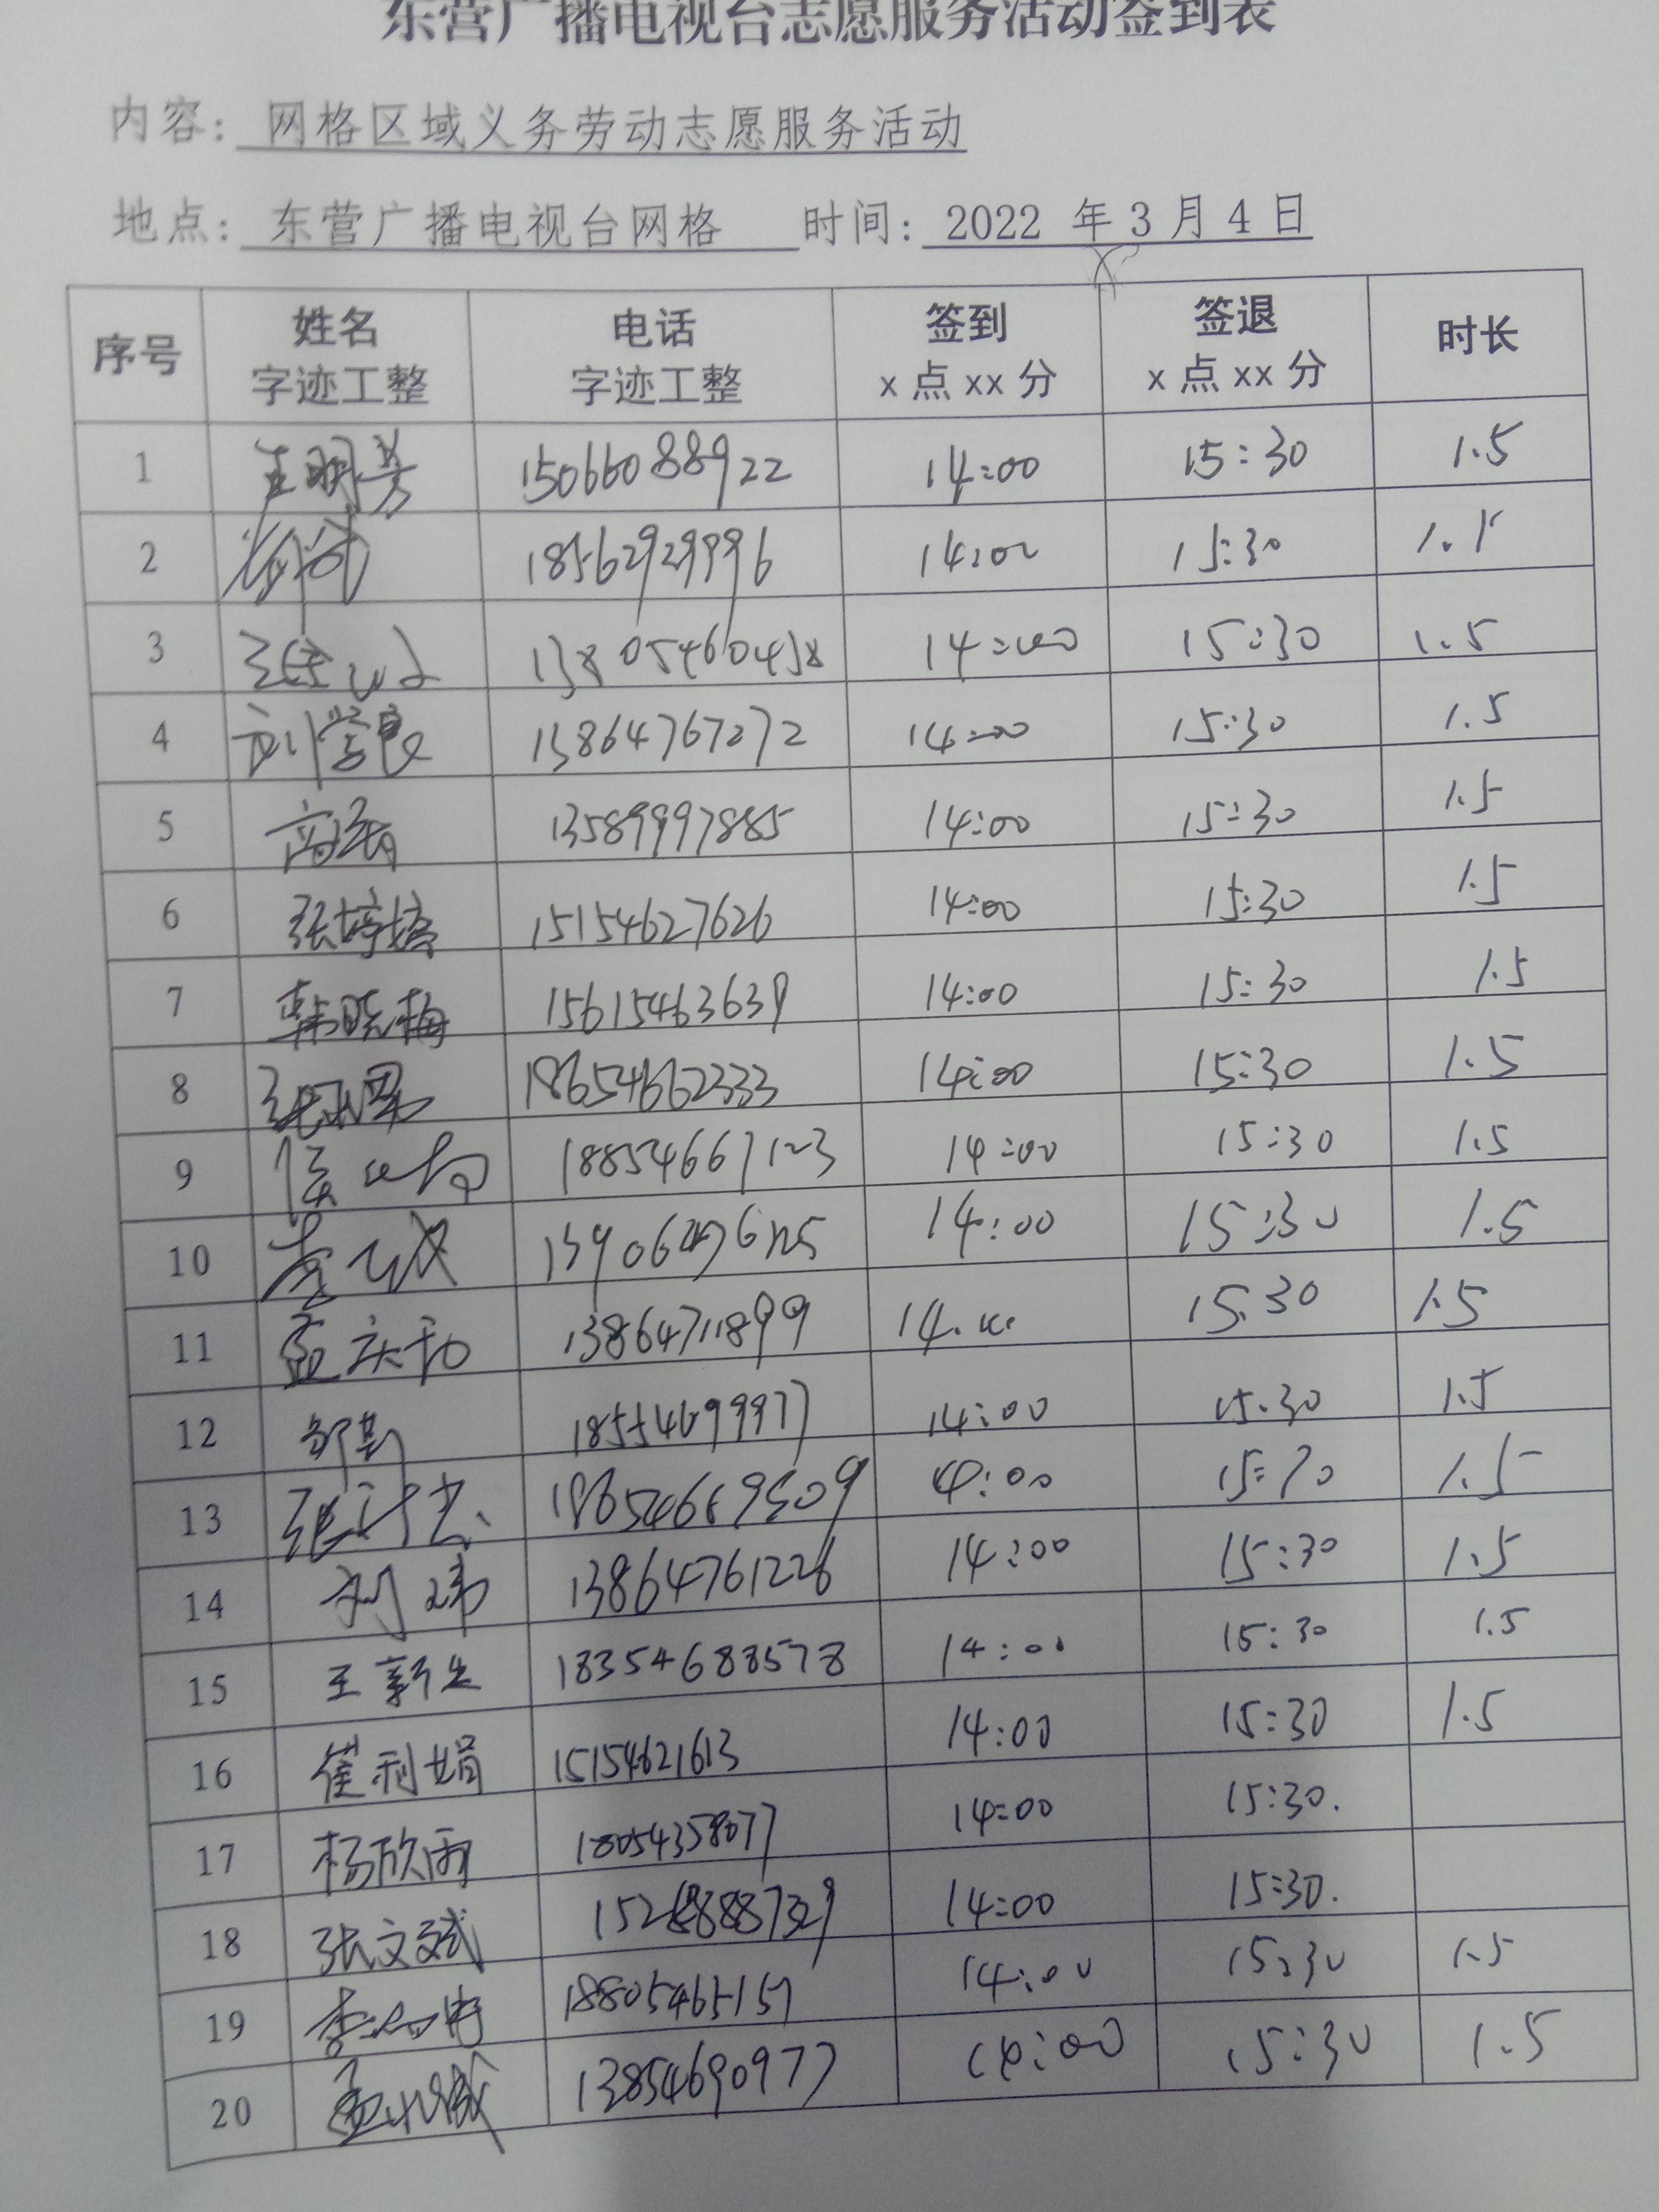 东营广播电视台志愿服务活动签到表
内容: 网格区域义务劳动志愿服务活动
地点: 东营广播电视台网格 时间: 2022 年 3 月 4 日
序号 姓名 字迹工整 电话 字迹工整 签到 x 点 xx 分 签退 x 点 xx 分 时长
1 王明芳 15066088922 14:00 15:30 1.5
2 18562929996 14:00 15:30 1.5
3 13805460438 14:00 15:30 1.5
4 刘学良 13864767272 14:00 15:30 1.5
5 13589997885 14:00 15:30 1.5
6 张婷婷 15154627626 14:00 15:30 1.5
7 韩晓梅 15615463639 14:00 15:30 1.5
8 18654662333 14:00 15:30 1.5
9 18854667123 14:00 15:30 1.5
10 14:00 15:30 1.5
11 孟庆和 13864711899 14.00 15.30 1.5
12 邹凯 18554699977 14:00 15.30 1.5
13 18654669509 14:00 15:30 1.5
14 刘琦 13864761226 14:00 15:30 1.5
15 王新生 18354688578 14:00 15:30 1.5
16 崔利娟 15154621613 14:00 15:30 1.5
17 杨欣雨 18054358077 14:00 15:30.
18 张文斌 14:00 15:30.
19 18805465157 14:00 15:30 1.5
20 13854690977 14:00 15:30 1.5